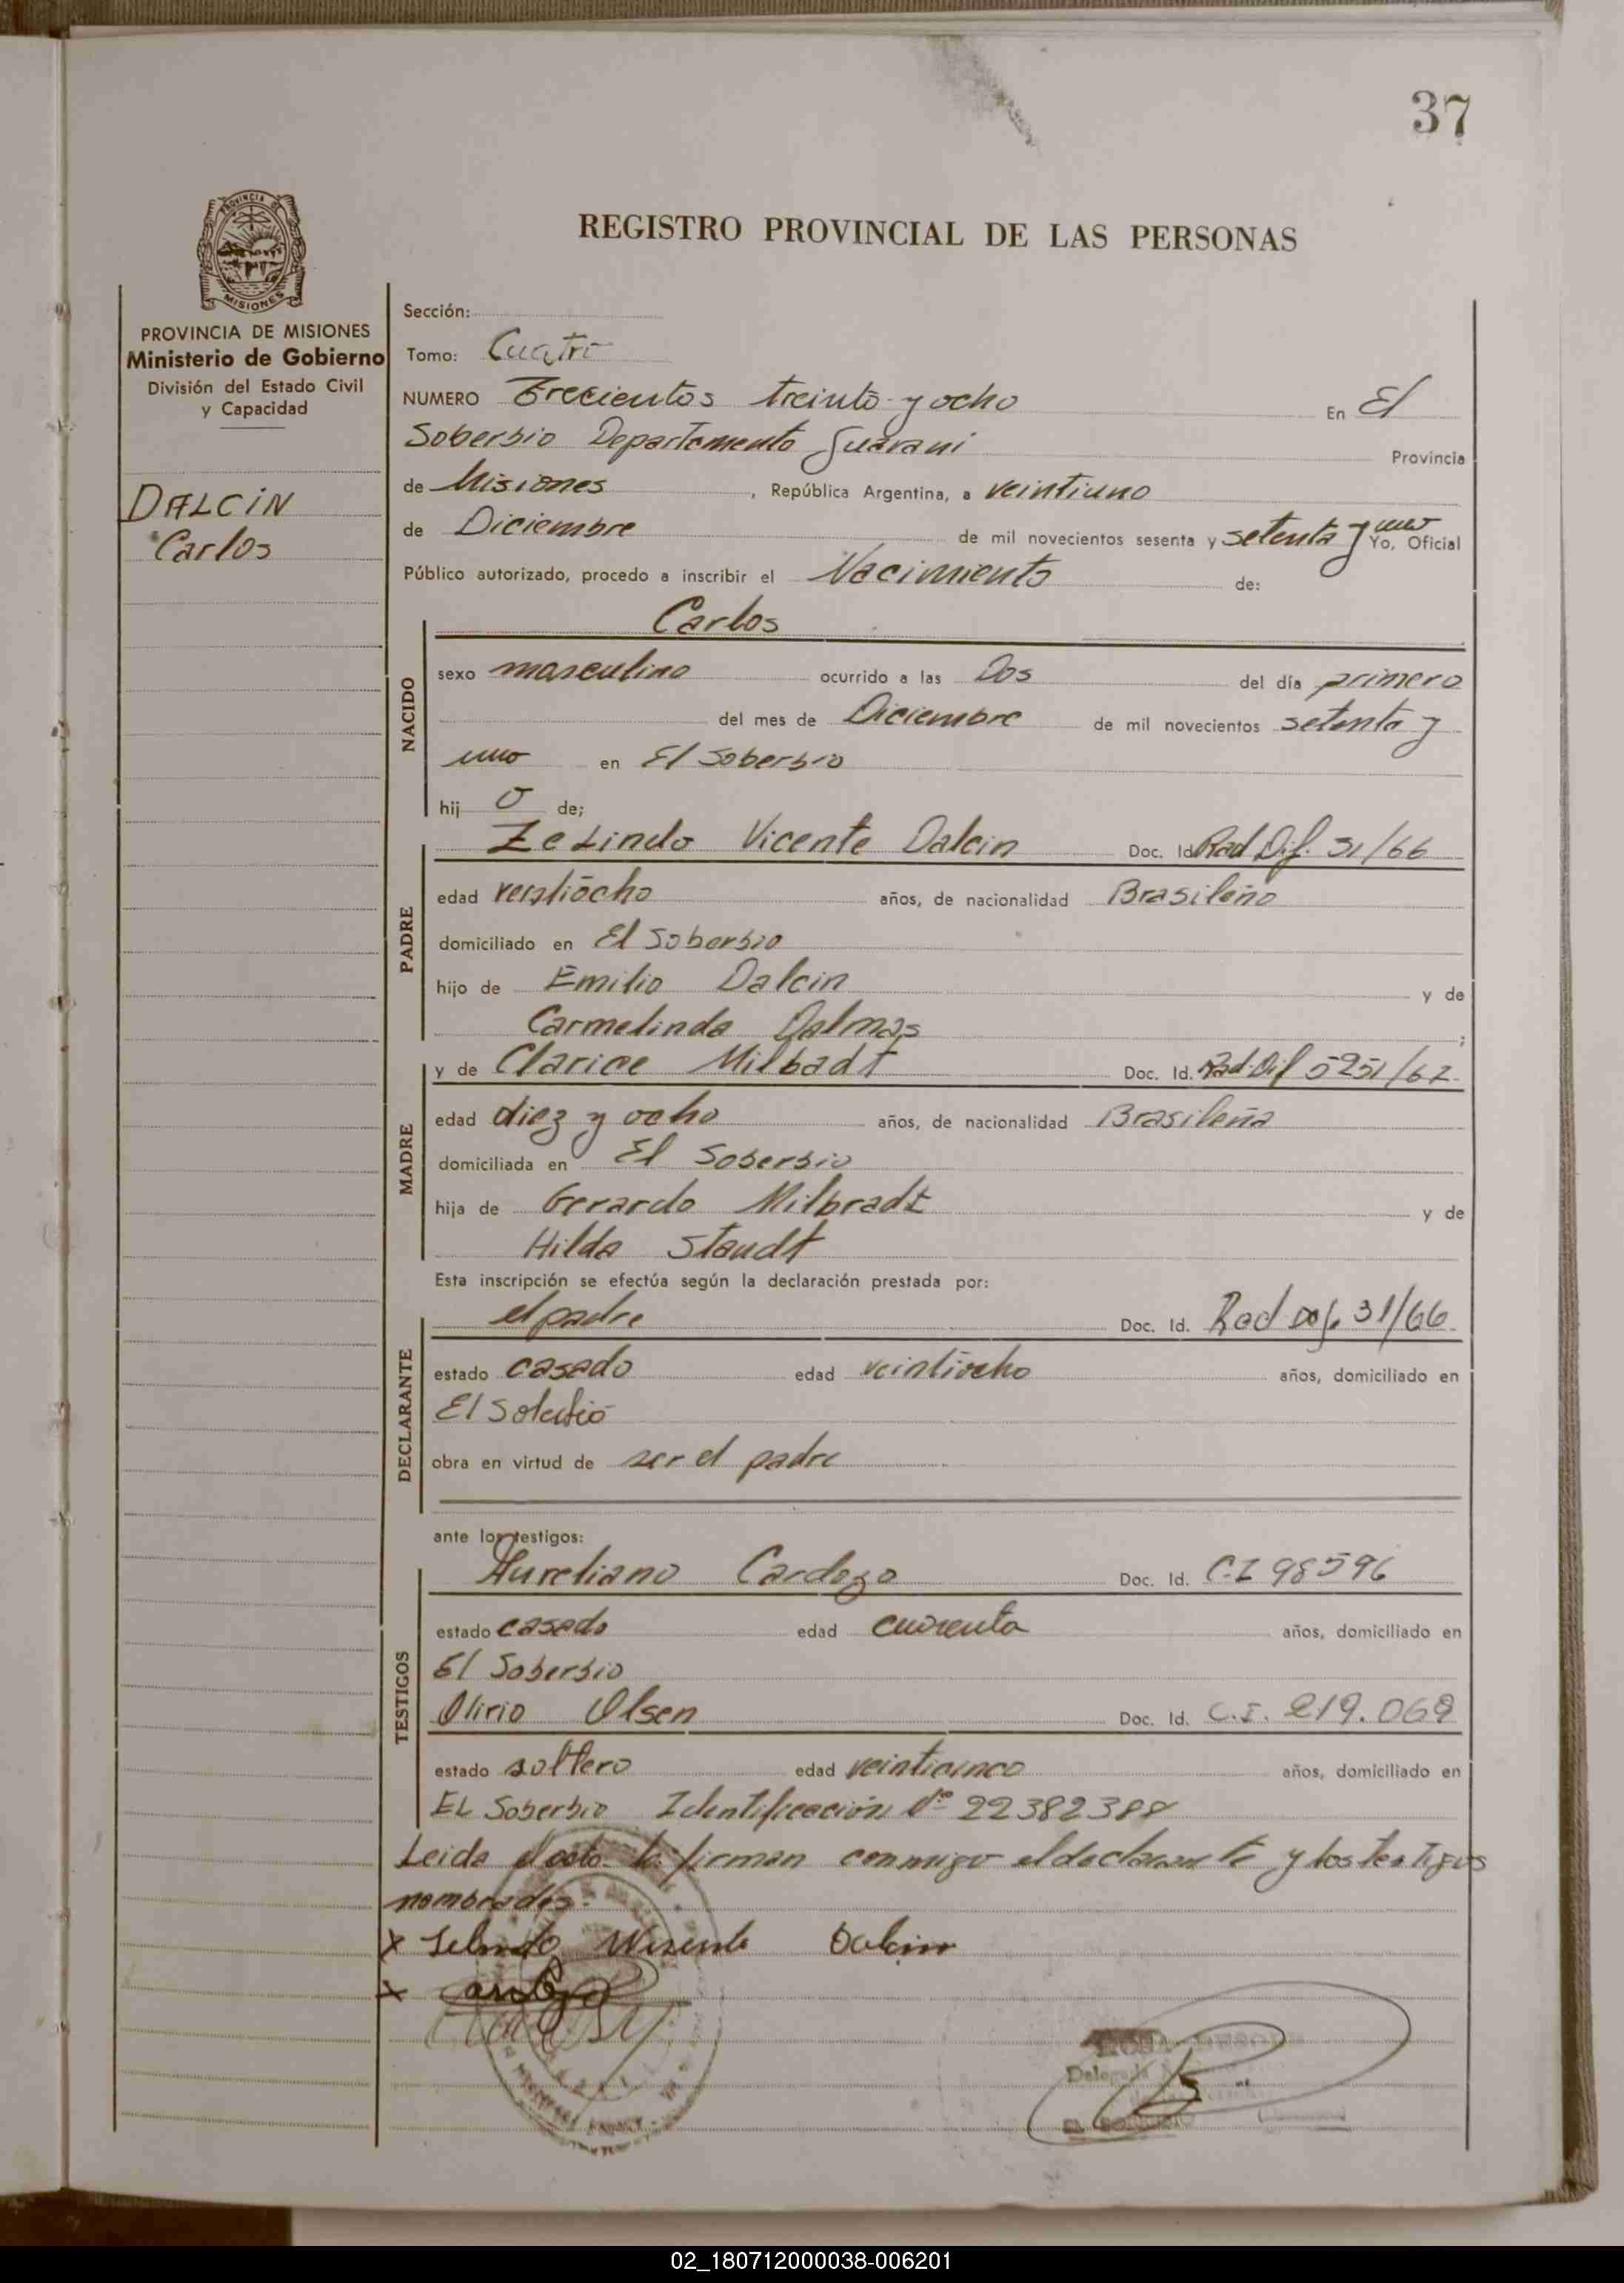 37
REGISTRO PROVINCIAL DE LAS PERSONAS
PROVINCIA DE
MISIONES
PROVINCIA DE MISIONES
Ministerio de Gobierno
División del Estado Civil
y Capacidad
DALCIN
Carlos
Sección:
Tomo: Cuatro
NUMERO Trecientos treinta y ocho En El
Soberbio Departamento Guarani Provincia
de Misiones, República Argentina, a veintiuno
de Diciembre de mil novecientos sesenta y setenta y uno Yo, Oficial
Público autorizado, procedo a inscribir el Nacimiento de:
Carlos
NACIDO
sexo masculino ocurrido a las Dos del día primero
del mes de Diciembre de mil novecientos setenta y
uno en El Soberbio
hij o de;
PADRE
Zelindo Vicente Dalcin Doc. Id. Rad Dif. 31/66
edad veintiocho años, de nacionalidad Brasileño
domiciliado en El Soberbio
hijo de Emilio Dalcin y de
Carmelinda Dalmas;
MADRE
y de Clarice Milbadt Doc. Id. Rad. Dif 5251/67
edad diez y ocho años, de nacionalidad Brasileña
domiciliada en El Soberbio
hija de Gerardo Milbradt y de
Hilda Staudt
Esta inscripción se efectúa según la declaración prestada por:
DECLARANTE
el padre Doc. Id. Rad 31/66
estado casado edad veintiocho años, domiciliado en
El Soberbio
obra en virtud de ser el padre
ante los testigos:
TESTIGOS
Aureliano Cardozo Doc. Id. C.I 98596
estado casado edad cuarenta años, domiciliado en
El Soberbio
Olirio Olsen Doc. Id. C.I. 219.069
estado soltero edad veinticinco años, domiciliado en
EL Soberbio Identificación Nº 22382388
Leida el acta la firman conmigo el declarante y los testigos
nombrados.
X Selindo Visente Dalcin
X
Delegada
EL SOBERBIO
02_180712000038-006201